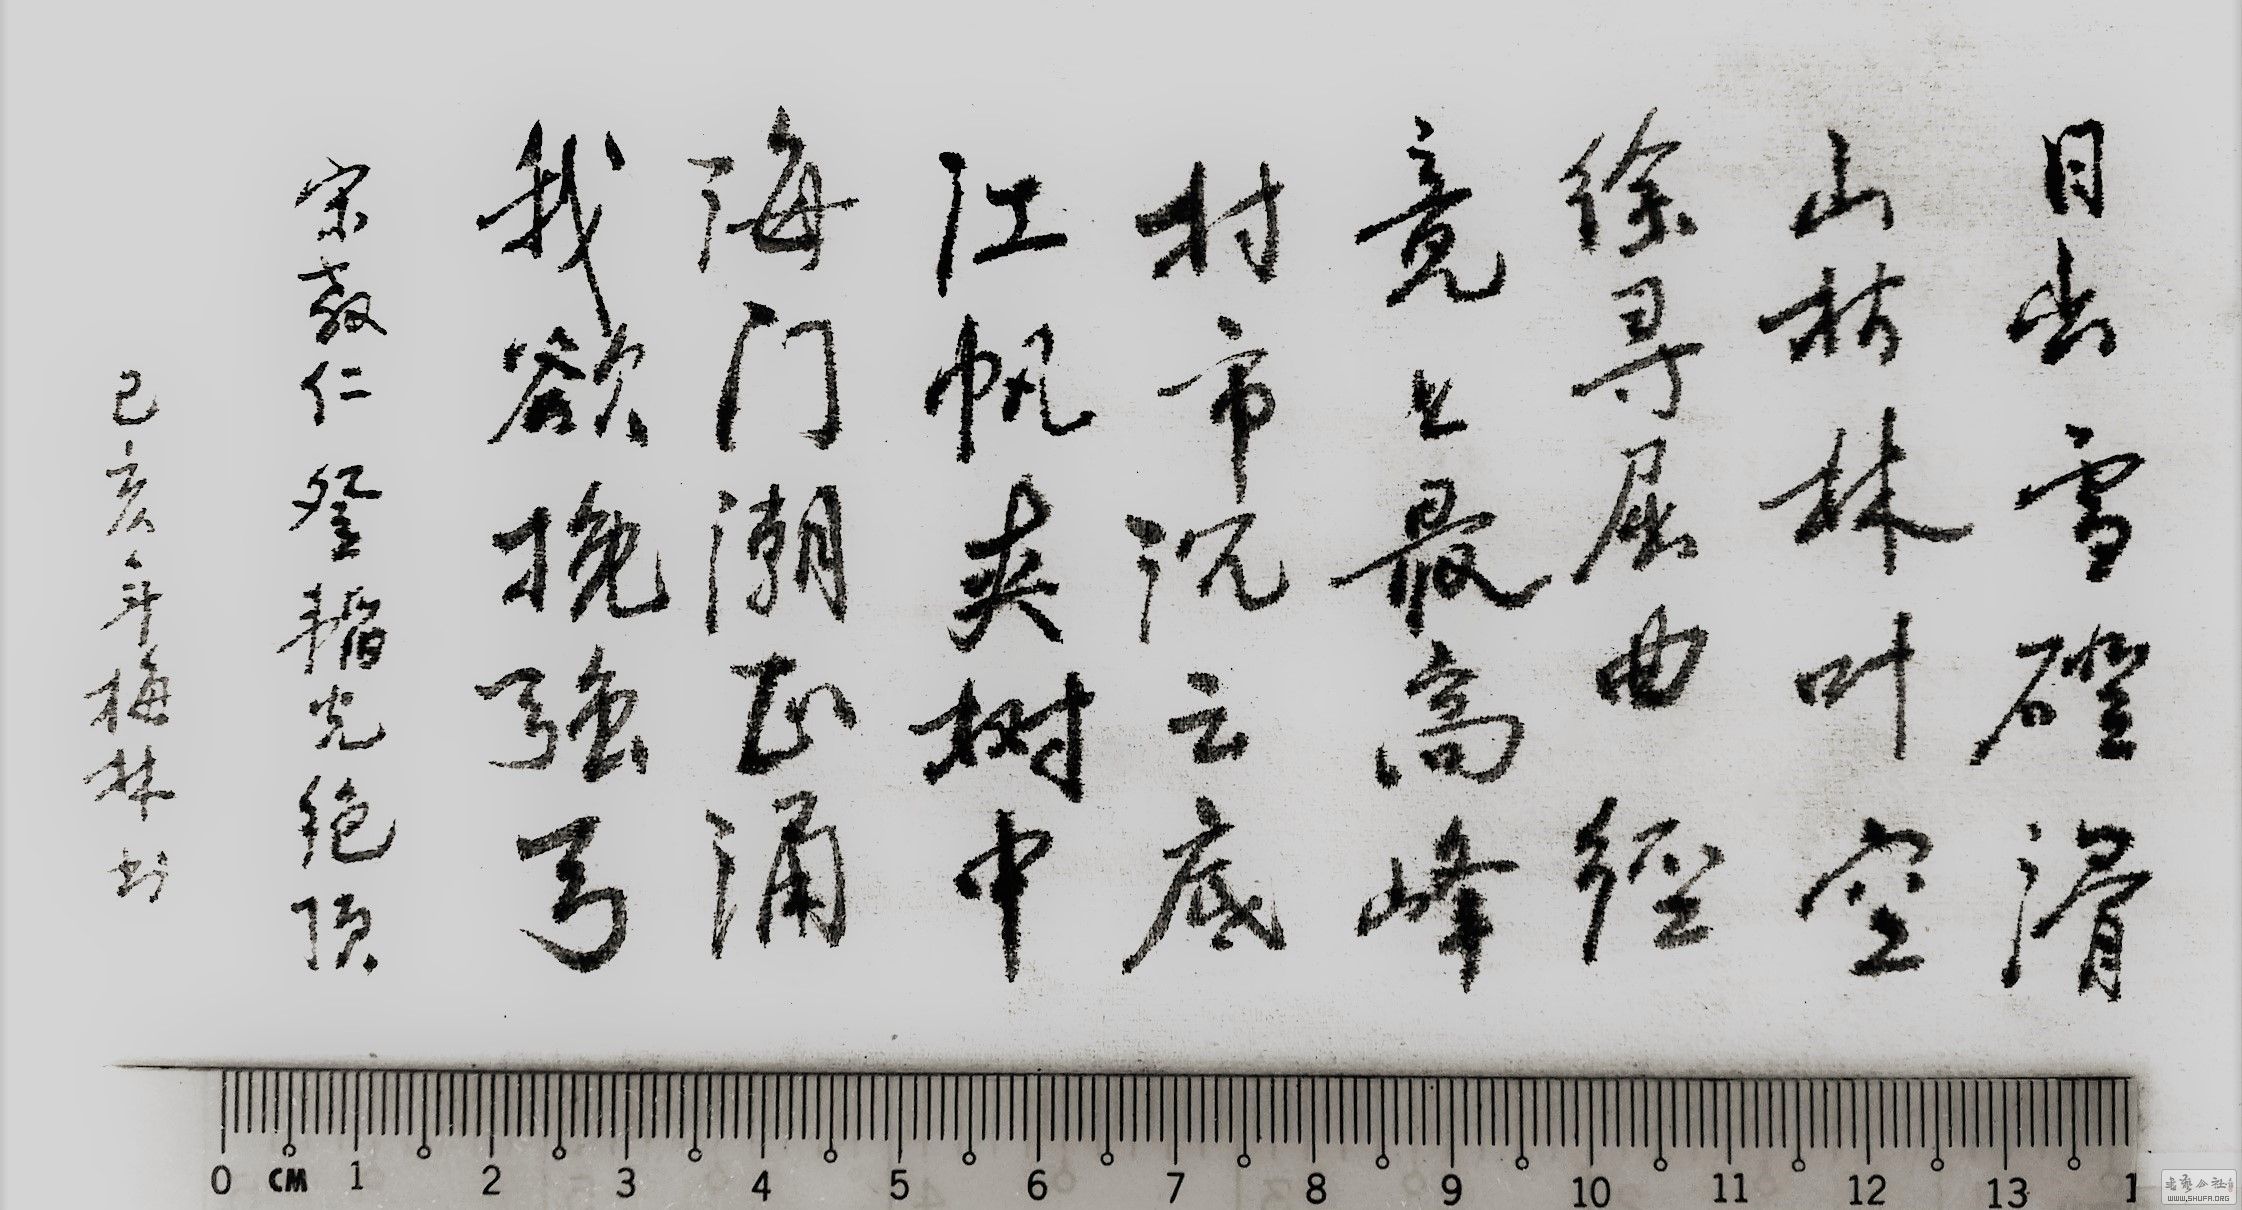 日出雪磴滑
山枯林叶空
徐寻屈曲徑
竟上最高峰
村市沉云底
江帆夹树中
海门潮正涌
我欲挽强弓
宋教仁登韜光绝顶
己亥年梅林书
0 CM 1 2 3 4 5 6 7 8 9 10 11 12 13 1
WWW.SHUFA.ORG